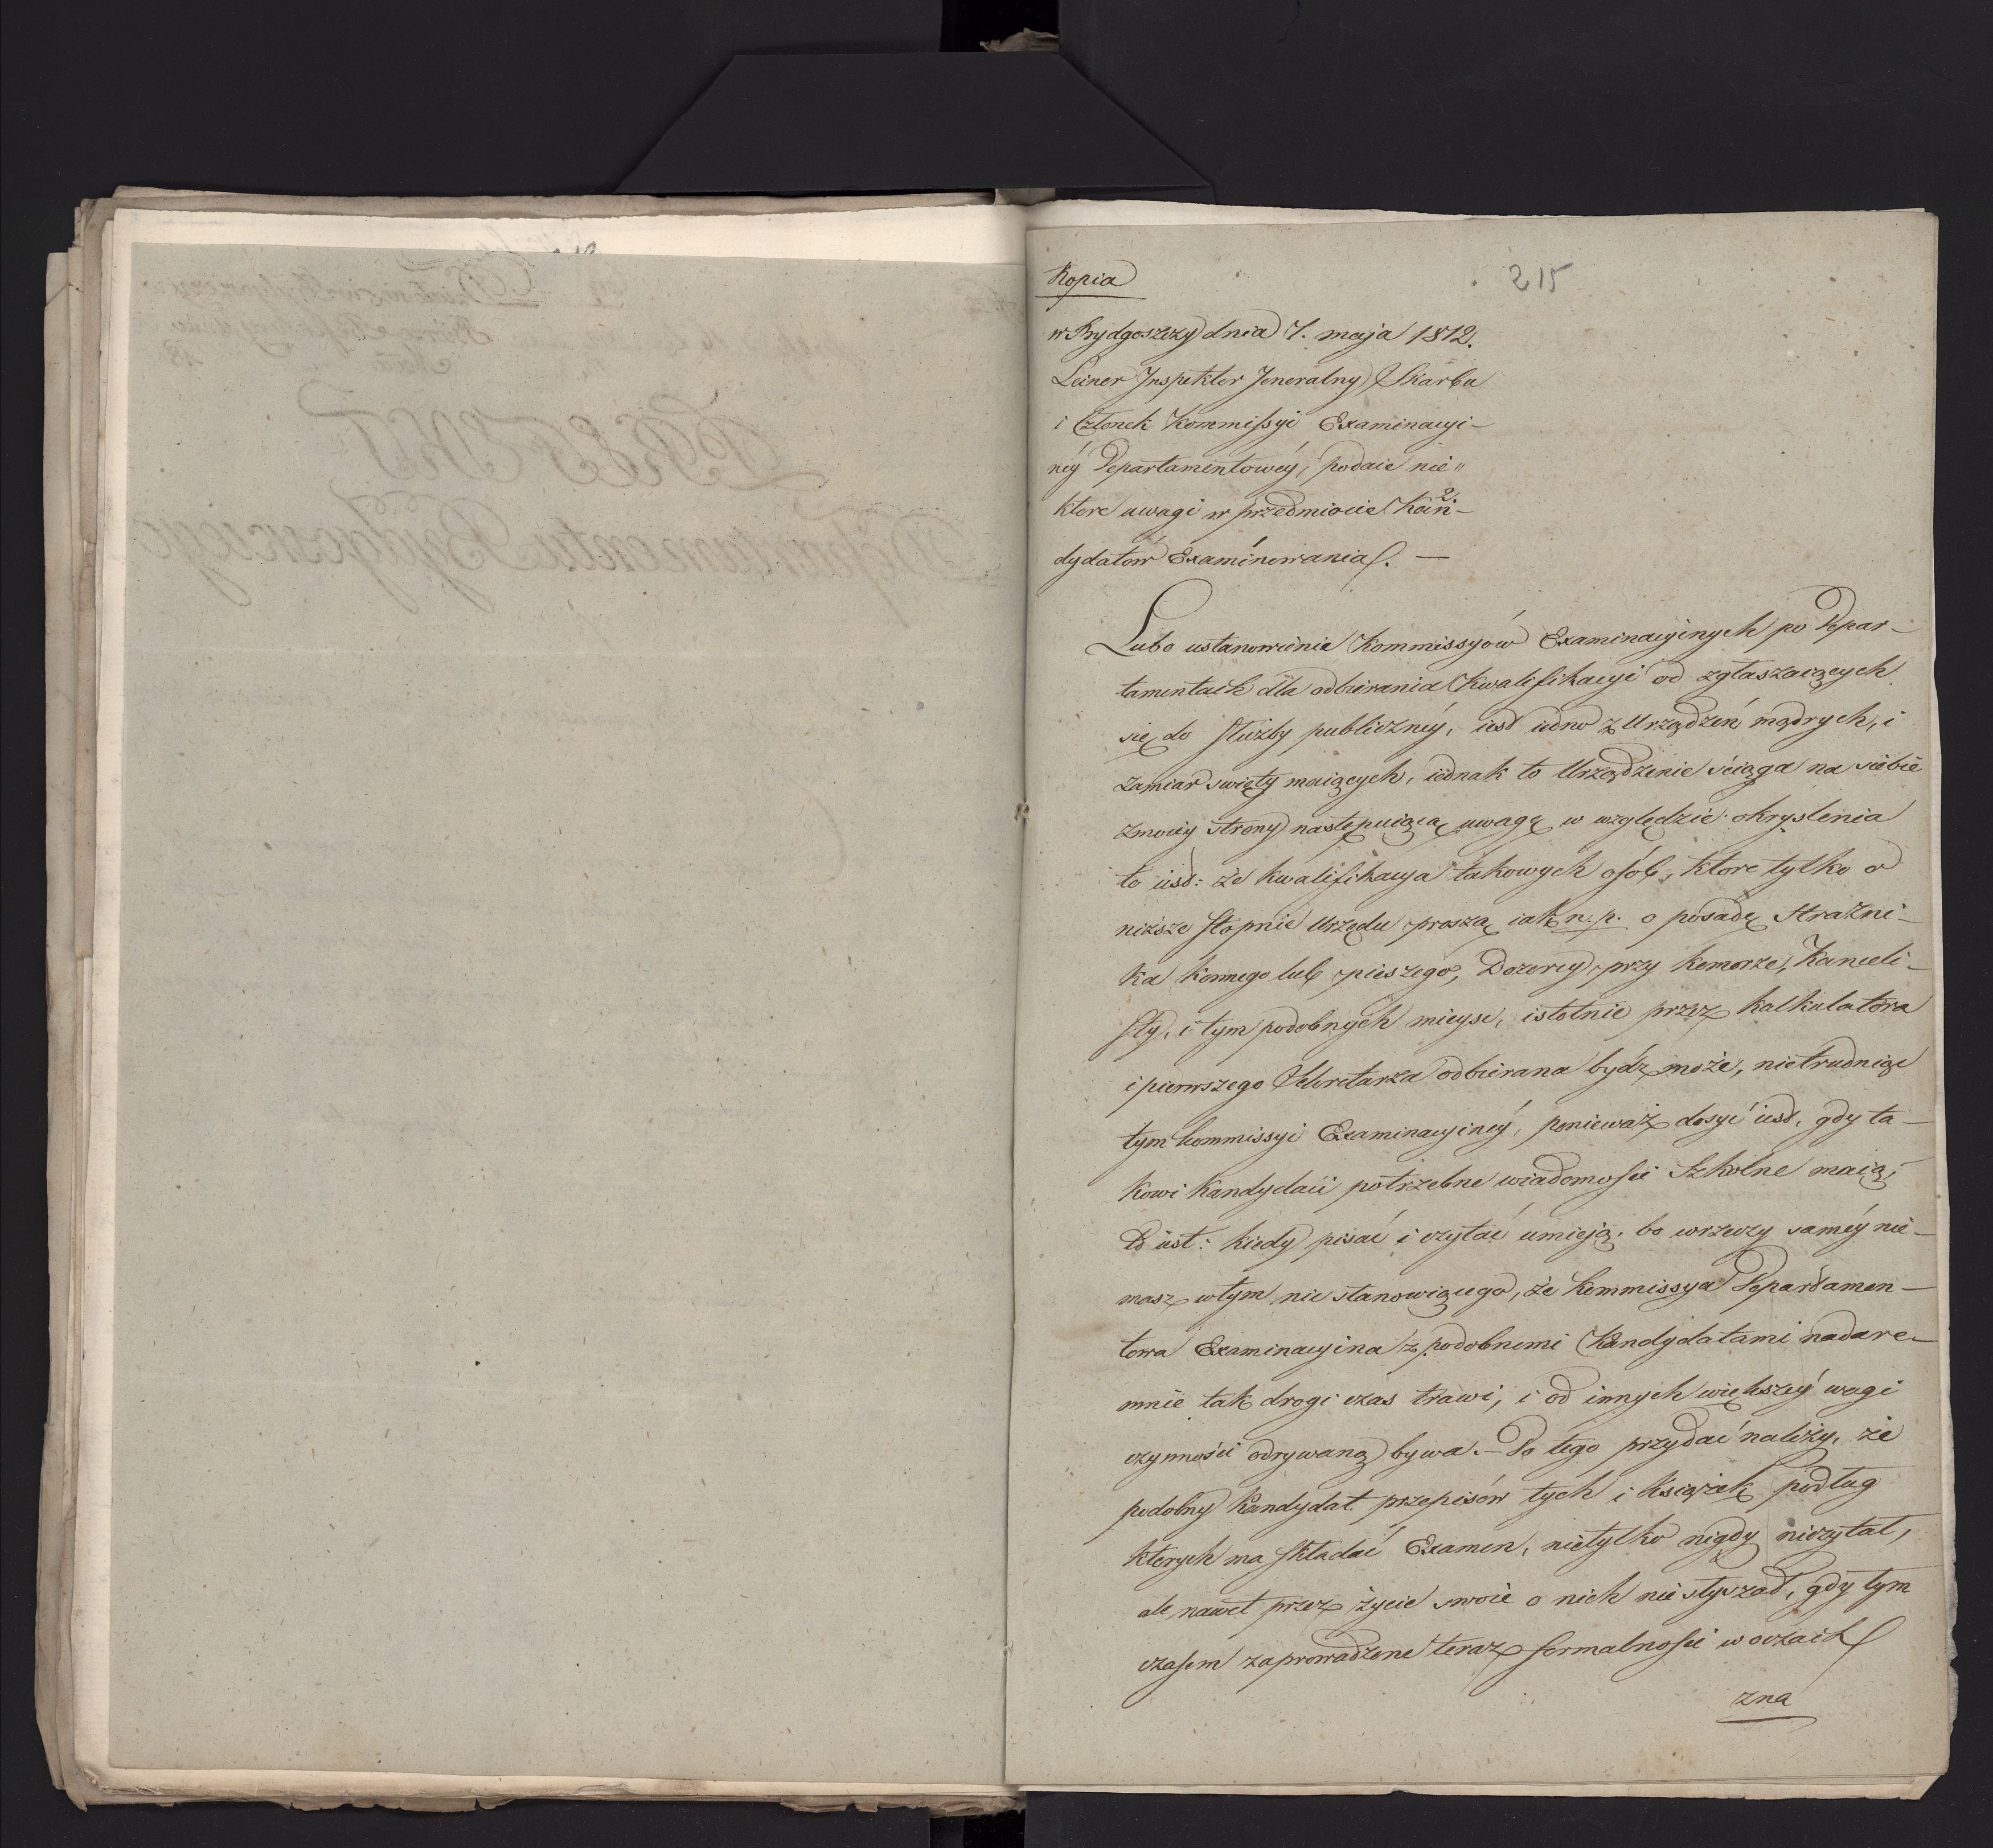 215
Kopia
w Bydgoszczy dnia 7. maja 1812.
Leiner Jnspektor Jeneralny Skarbu
i Członek Kommissyi Examinacyi-
néy Departamentowéy, podaie nie"
ktore uwagi w przedmiocie Kan-
dydatów Examinowania. —
Lubo ustanowienie Kommissyów Examinacyinych po Depar-
tamentach dla odbierania Kwalifikacyi od zgłaszaiących
się do służby publicznéy, iest iedno z Urządzeń mądrych, i
zamiar swięty maiących, iednak to Urządzenie ściąga na siebie
zmoiey strony następuiącą uwagę w względzie okryslenia
to iest: że kwalifikacya takowych osób, ktore tylko o
niższe stopnie Urzędu proszą iak n. p. o posadę Strażni-
ka konnego lub pieszego, Dozorcy przy komorze, Kancelli-
sty, i tym podobnych mieysc, istotnie przez kalkulatora
i pierwszego Sekretarza odbierana bydź może, nietrudniąc
tym kommissyi Examinacyinéy, ponieważ dosyć iest, gdy ta-
kowi Kandydaci potrzebne wiadomości Szkolne maią,
to iest: kiedy pisać i czytać umieją, bo wrzeczy saméy nie-
masz wtym nic stanowiącego, że kommissya Departamen-
towa Examinacyina z podobnemi Kandydatami nadare-
mnie tak drogi czas trawi, i od innych większéy wagi
czynności odrywaną bywa. — Do tego przydać należy, że
podobny Kandydat przepisów tych i Książek podług
ktorych ma składać Examen, nietylko nigdy nieczytał,
ale nawet przez życie swoie o nich nie słyszał, gdy tym
czasem zaprowadzone teraz formalności w oczach
zna